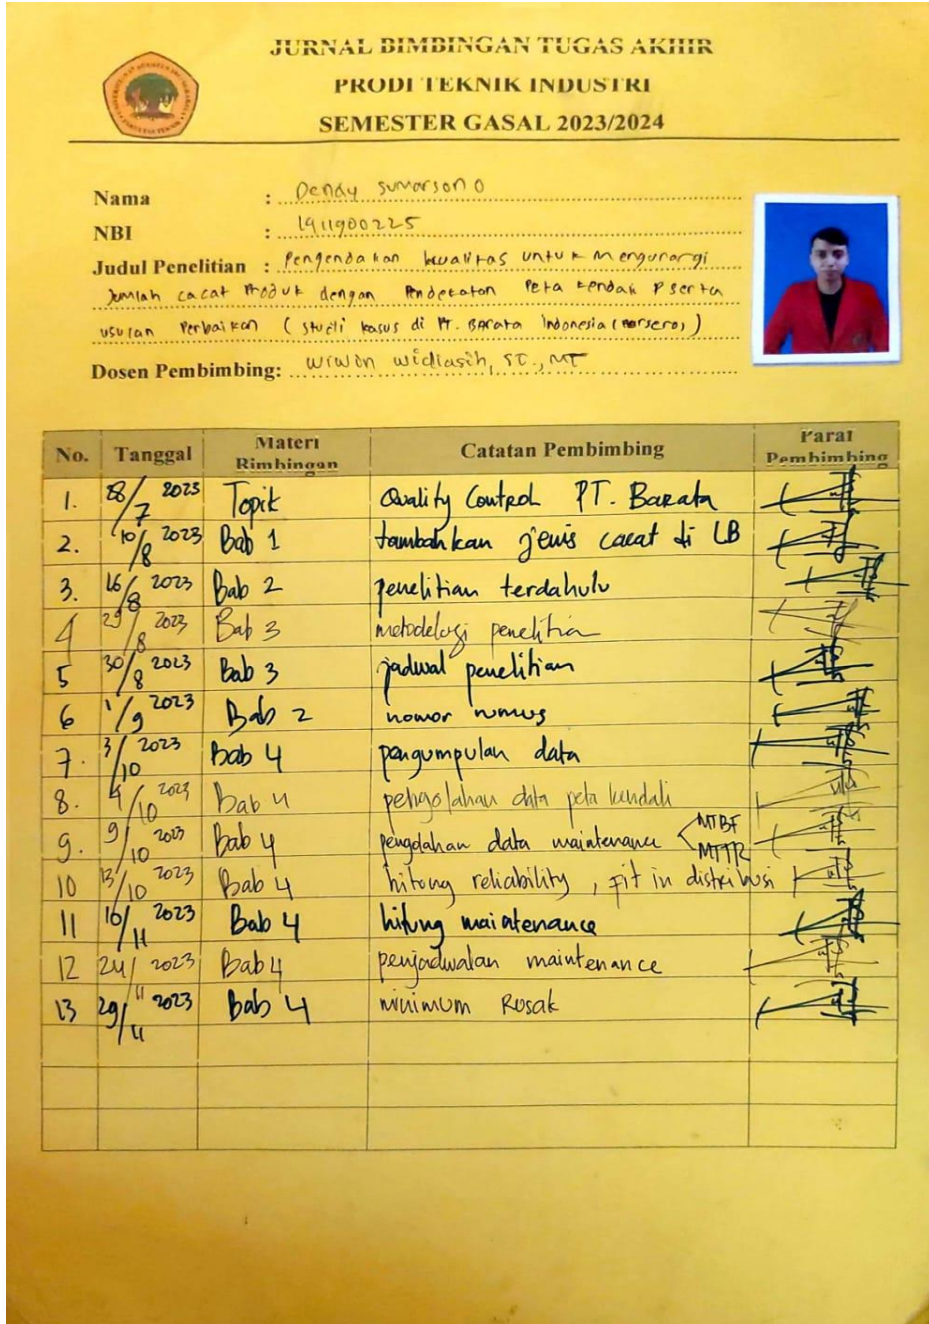 JURNAL BIMBINGAN TUGAS AKHIR
PRODI TEKNIK INDUSTRI
SEMESTER GASAL 2023/2024
Nama : Dendy Sumarsono
NBI : 1911900225
Judul Penelitian : Pengendalian kualitas untuk Mengurangi
Jumlah cacat Produk dengan Pendekatan Peta Kendali P serta
usulan Perbaikan (studi kasus di PT. Barata Indonesia (Persero))
Dosen Pembimbing: Wiwin Widiasih, ST., MT
No. Tanggal Materi Bimbingan Catatan Pembimbing Paraf Pembimbing
1. 28/7 2023 Topik Quality Control PT. Barata
2. 10/8 2023 Bab 1 tambahkan jenis cacat di LB
3. 16/8 2023 Bab 2 penelitian terdahulu
4 29/8 2023 Bab 3 metodelogi penelitian
5 30/8 2023 Bab 3 jadwal penelitian
6 1/9 2023 Bab 2 nomor rumus
7. 3/10 2023 Bab 4 pengumpulan data
8. 4/10 2023 Bab 4 pengolahan data peta kendali
9. 9/10 2023 Bab 4 pengolahan data maintenance < MTBF MTTR
10 13/10 2023 Bab 4 hitung reliability, fit in distribusi
11 16/11 2023 Bab 4 hitung maintenance
12 24/11 2023 Bab 4 penjadwalan maintenance
13 29/11 2023 Bab 4 minimum Rusak